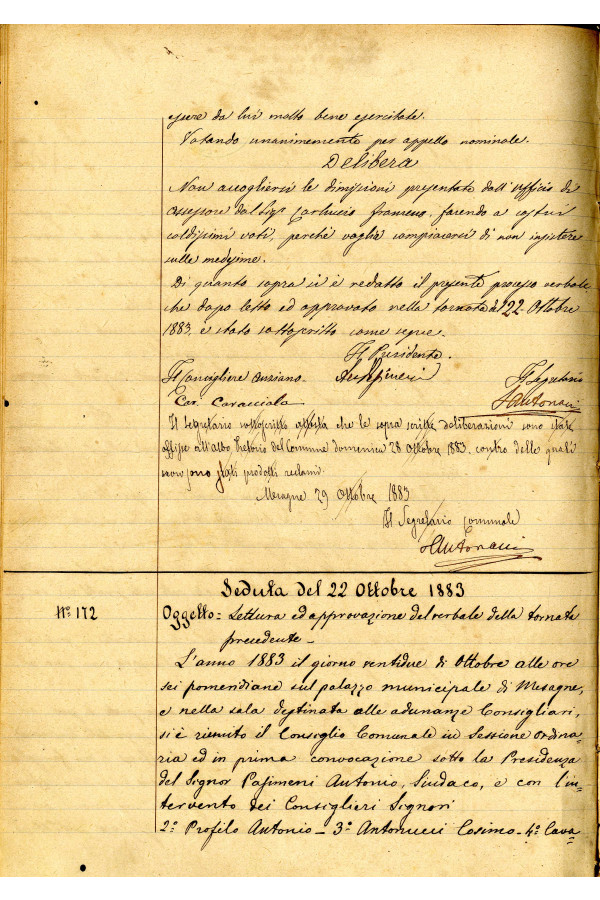 essere da lui molto bene esercitate.
Votando unanimemente per appello nominale.
Delibera
Non accogliersi le dimissioni presentate dall'Ufficio di
Assessore dal Sigr Carluccio Francesco, facendo a costui
caldissimi voti, perchè voglia compiacersi di non insistere
sulle medesime.
Di quanto sopra si è redatto il presente processo verbale
che dopo letto ed approvato nella tornata del 22 Ottobre
1883, è stato sottoscritto come segue.
Il Presidente.
Il Consigliere Anziano
Il Segretario
Cav. Caracciolo
Antonucci
Il Segretario sottoscritto attesta che le sopra scritte deliberazioni sono state
affisse all'albo Pretorio del Comune domenica 28 Ottobre 1883, contro delle quali
non sono stati prodotti reclami.
Mesagne 29 Ottobre 1883
Il Segretario Comunale
Antonucci
Seduta del 22 Ottobre 1883
No. 172
Oggetto = Lettura ed approvazione del verbale della tornata
precedente _
L'anno 1883 il giorno ventidue di Ottobre alle ore
sei pomeridiane sul palazzo municipale di Mesagne,
e nella sala destinata alle adunanze Consigliari,
si è riunito il Consiglio Comunale in Sessione ordina=
ria ed in prima convocazione sotto la Presidenza
del Signor Pasimeni Antonio, Sindaco, e con l'in=
tervento dei Consiglieri Signori
2o Profilo Antonio _ 3o Antonucci Cosimo _ 4o Cava=